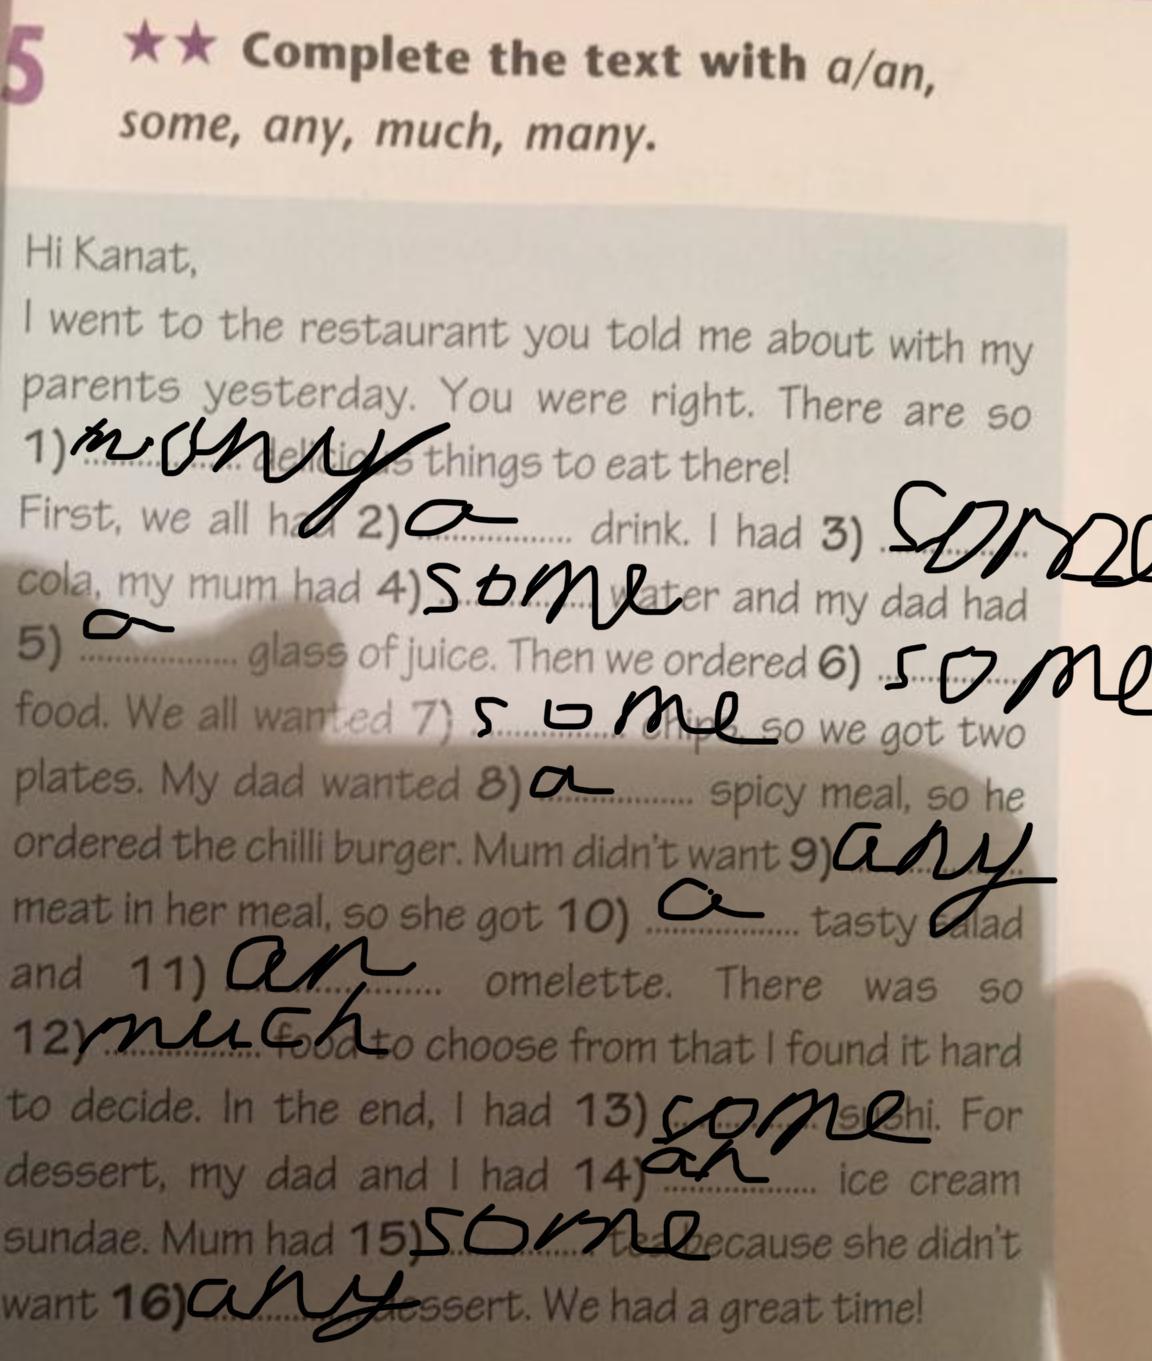 5 ★★ Complete the text with a/an,
some, any, much, many.
Hi Kanat,
I went to the restaurant you told me about with my
parents yesterday. You were right. There are so
1) many delicious things to eat there!
First, we all had 2) a drink. I had 3) some
cola, my mum had 4) some water and my dad had
5) a glass of juice. Then we ordered 6) some
food. We all wanted 7) some chips, so we got two
plates. My dad wanted 8) a spicy meal, so he
ordered the chilli burger. Mum didn't want 9) any
meat in her meal, so she got 10) a tasty salad
and 11) an omelette. There was so
12) much food to choose from that I found it hard
to decide. In the end, I had 13) some sushi. For
dessert, my dad and I had 14) an ice cream
sundae. Mum had 15) some tea because she didn't
want 16) any dessert. We had a great time!